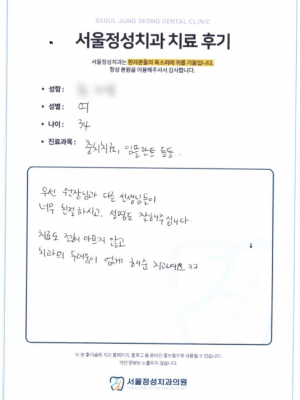 SEOUL JUNG SEONG DENTAL CLINIC
서울정성치과 치료 후기
서울정성치과는 환자분들의 목소리에 귀를 기울입니다.
항상 본원을 이용해주셔서 감사합니다.
• 성함 :
• 성별 : 여
• 나이 : 34
• 진료과목 : 충치치료, 임플란트 등등.
우선 원장님과 다른 선생님들이
너무 친절하시고, 설명도 잘해주십니다
치료도 전혀 아프지 않고
치과의 두려움이 없게 해준 치과에요 ㅋㅋ
※ 본 후기글은 치과 홈페이지, 블로그 등 온라인 홍보용으로 사용될 수 있습니다.
개인 정보는 노출되지 않습니다.
서울정성치과의원